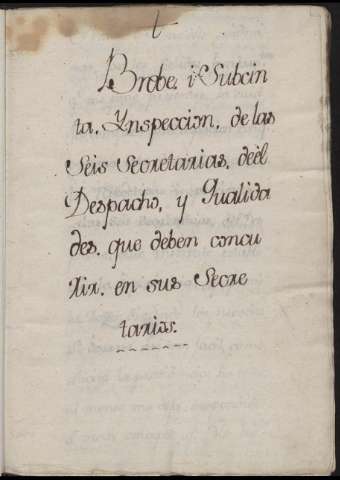 Brebe. i Subcin
ta. Ynspeccion. de las
Seis Secretarias. deèl
Despacho, y Qualida
des. que deben concu
rir. en sus Secre
tarias.